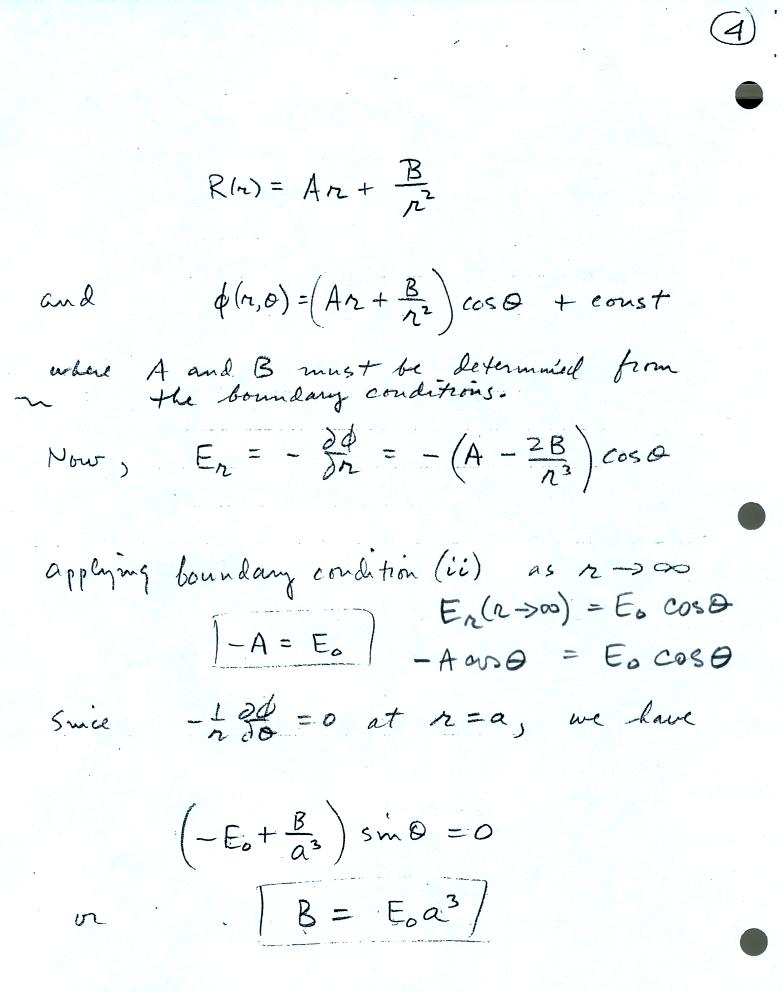 4
R(r) = Ar + B/r²
and φ(r,θ) = (Ar + B/r²) cosθ + const
where A and B must be determined from
the boundary conditions.
Now, E_r = - ∂φ/∂r = - (A - 2B/r³) cosθ
applying boundary condition (ii) as r → ∞
E_r(r→∞) = E₀ cosθ
-A = E₀
-A cosθ = E₀ cosθ
Since -1/r ∂φ/∂θ = 0 at r = a, we have
(-E₀ + B/a³) sinθ = 0
or B = E₀a³